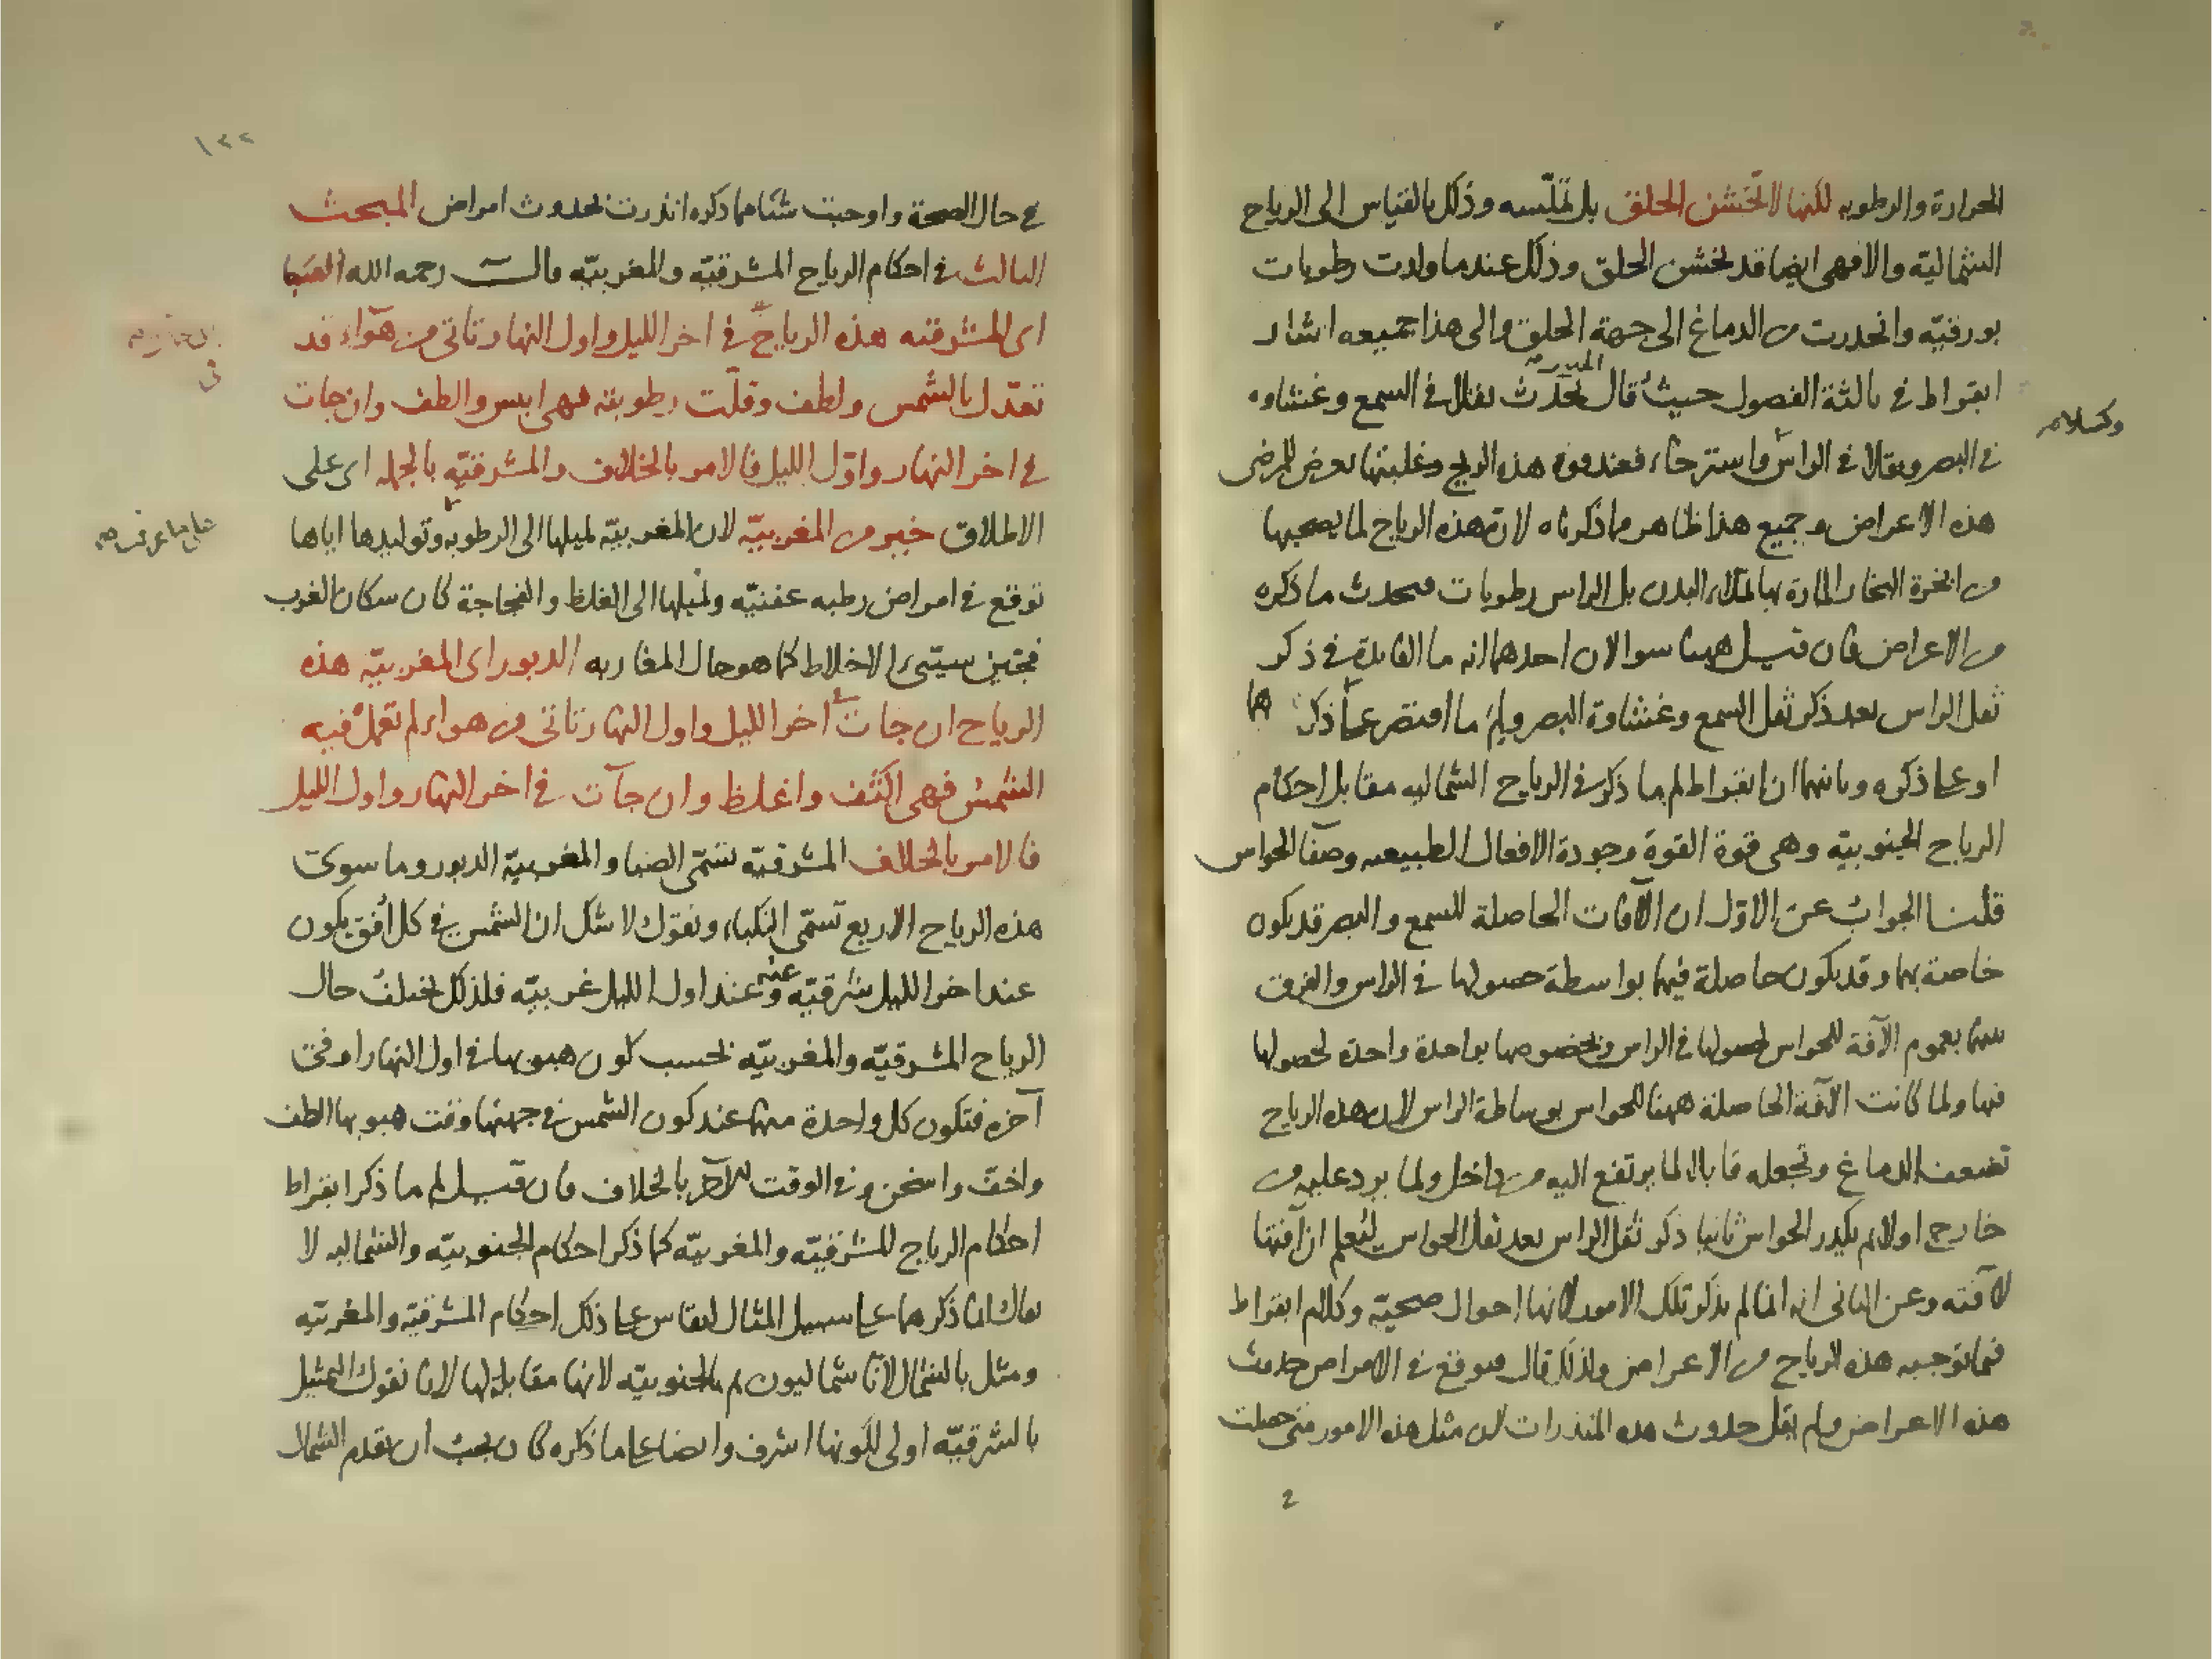 الحرارة والرطوبه لكنها لا تخشن الحلق بل تملّسه وذلك بالقياس الى الرياح
الشماليّة والا فهى ايضا قد تخشن الحلق وذلك عندما ولدت رطوبات
بورقيّة وانحدرت من الدماغ الى جهة الحلق والى هذا جميعه اشار
ابقراط فى ثالثة الفصول حيث قال تحدث ثقلا فى السمع وغشاوه
فى البصر وثقلا فى الراس واسترخاء فعند قوة هذه الريح وغلبتها يعرض للمرضى
هذه الاعراض وجميع هذا ظاهر مما ذكرناه لان هذه الرياح لما يصحبها
من ابخرة البخار المارة بها تملاء البدن بل الراس رطوبات فيحدث ما ذكره
من الاعراض فان قيل ههنا سوالان احدهما انه ما الفايدة فى ذكر
ثقل الراس بعد ذكر ثقل السمع وغشاوة البصر ولم ما اقتصر على ذكر
او على ذكره وثانيهما ان ابقراط لم ما ذكر فى الرياح الشماليه مقابل احكام
الرياح الجنوبيّة وهى قوة القوة وجودة الافعال الطبيعيه وصفا الحواس
قلنا الجواب عن الاوّل ان الآفات الحاصلة للسمع والبصر قد يكون
خاصة بهما وقد يكون حاصلة فيهما بواسطة حصولها فى الراس والفرق
بينهما بعموم الآفة للحواس لحصولها فى الراس وبخصوصها بواحدة واحدة لحصولها
فيها ولما كانت الآفة الحاصلة ههنا للحواس بوساطة الراس لان هذه الرياح
تضعف الدماغ وتجعله قابلا لما يرتفع اليه من داخل ولما يرد عليه من
خارج اولا ثم يكدر الحواس ثانيا ذكر ثقل الراس بعد ثقل الحواس ليُعلم ان آفتها
لآفته وعن الثانى انه انما لم يذكر تلك الامور لانها احوال صحيّة وكلام ابقراط
فيما توجبه هذه الرياح من الاعراض ولذلك قال فيوقع فى الامراض حدوث
هذه الاعراض ولم يقل حدوث هذه المنذرات لان مثل هذه الامور متى حصلت
فى حال الصحة واوجبت شيئا مما ذكره انذرت بحدوث امراض المبحث
الثالث فى احكام الرياح المشرقيّه والمغربيّه قالــ رحمه الله الصَبا
اى المشرقيه هذه الرياح فى اخر الليل واول النهار تاتى من هوآء قد
تعدّل بالشمس ولطف وقلّت رطوبته فهى ايبس والطف وان جات
فى اخر النهار واوّل الليل فالامر بالخلاف والمشرقيّه بالجمله اى على
الاطلاق خير من المغربيّه لان المغربيّه لميلها الى الرطوبه وتوليدها اياها
توقع فى امراض رطبه عفنيّه ولميلها الى الغلظ والفجاجة كان سكان الغرب
فجّين سيّىء الاخلاط كما هو حال المغاربه الدبور اى المغربيّه هذه
الرياح ان جات اخر الليل واول النهار تاتى من هواء لم تعمل فيه
الشمس فهى اكثف واغلظ وان جآت فى اخر النهار واول الليل
فالامر بالخلاف المشرقيّه تسّمى الصبا والمغربيّه الدبور وما سوى
هذه الرياح الاربع تسمّى النكباء ونقول لا شك ان الشمس فى كل اُفق يكون
عند اخر الليل شرقيّه وعند اول الليل غربيّه فلذلك يختلف حال
الرياح المشرقيّه والمغربيّه بحسب كون هبوبها فى اول النهار او فى
آخره فتكون كل واحدة منهما عند كون الشمس فى جهتها وقت هبوبها الطف
واخفّ واسخن وفى الوقت الاخر بالخلاف فان قيل لم ما ذكر ابقراط
احكام الرياح المشرقيّه والمغربيّه كما ذكر احكام الجنوبيّه والشماليه لا
يقال انما ذكرهما على سبيل المثال ليقاس على ذلك احكام المشرقيّه والمغربيّه
ومثل بالشمال لانا شماليون ثم بالجنوبيّه لانها مقابله لها لانا نقول التمثيل
بالشرقيّه اولى لكونها اشرف وايضا على ما ذكره كان يجب ان يقدم الشمال